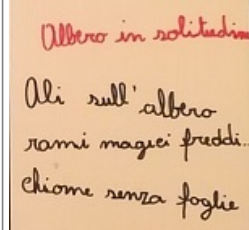 Albero in solitudin
Ali sull'albero
rami magici freddi..
chiome senza foglie